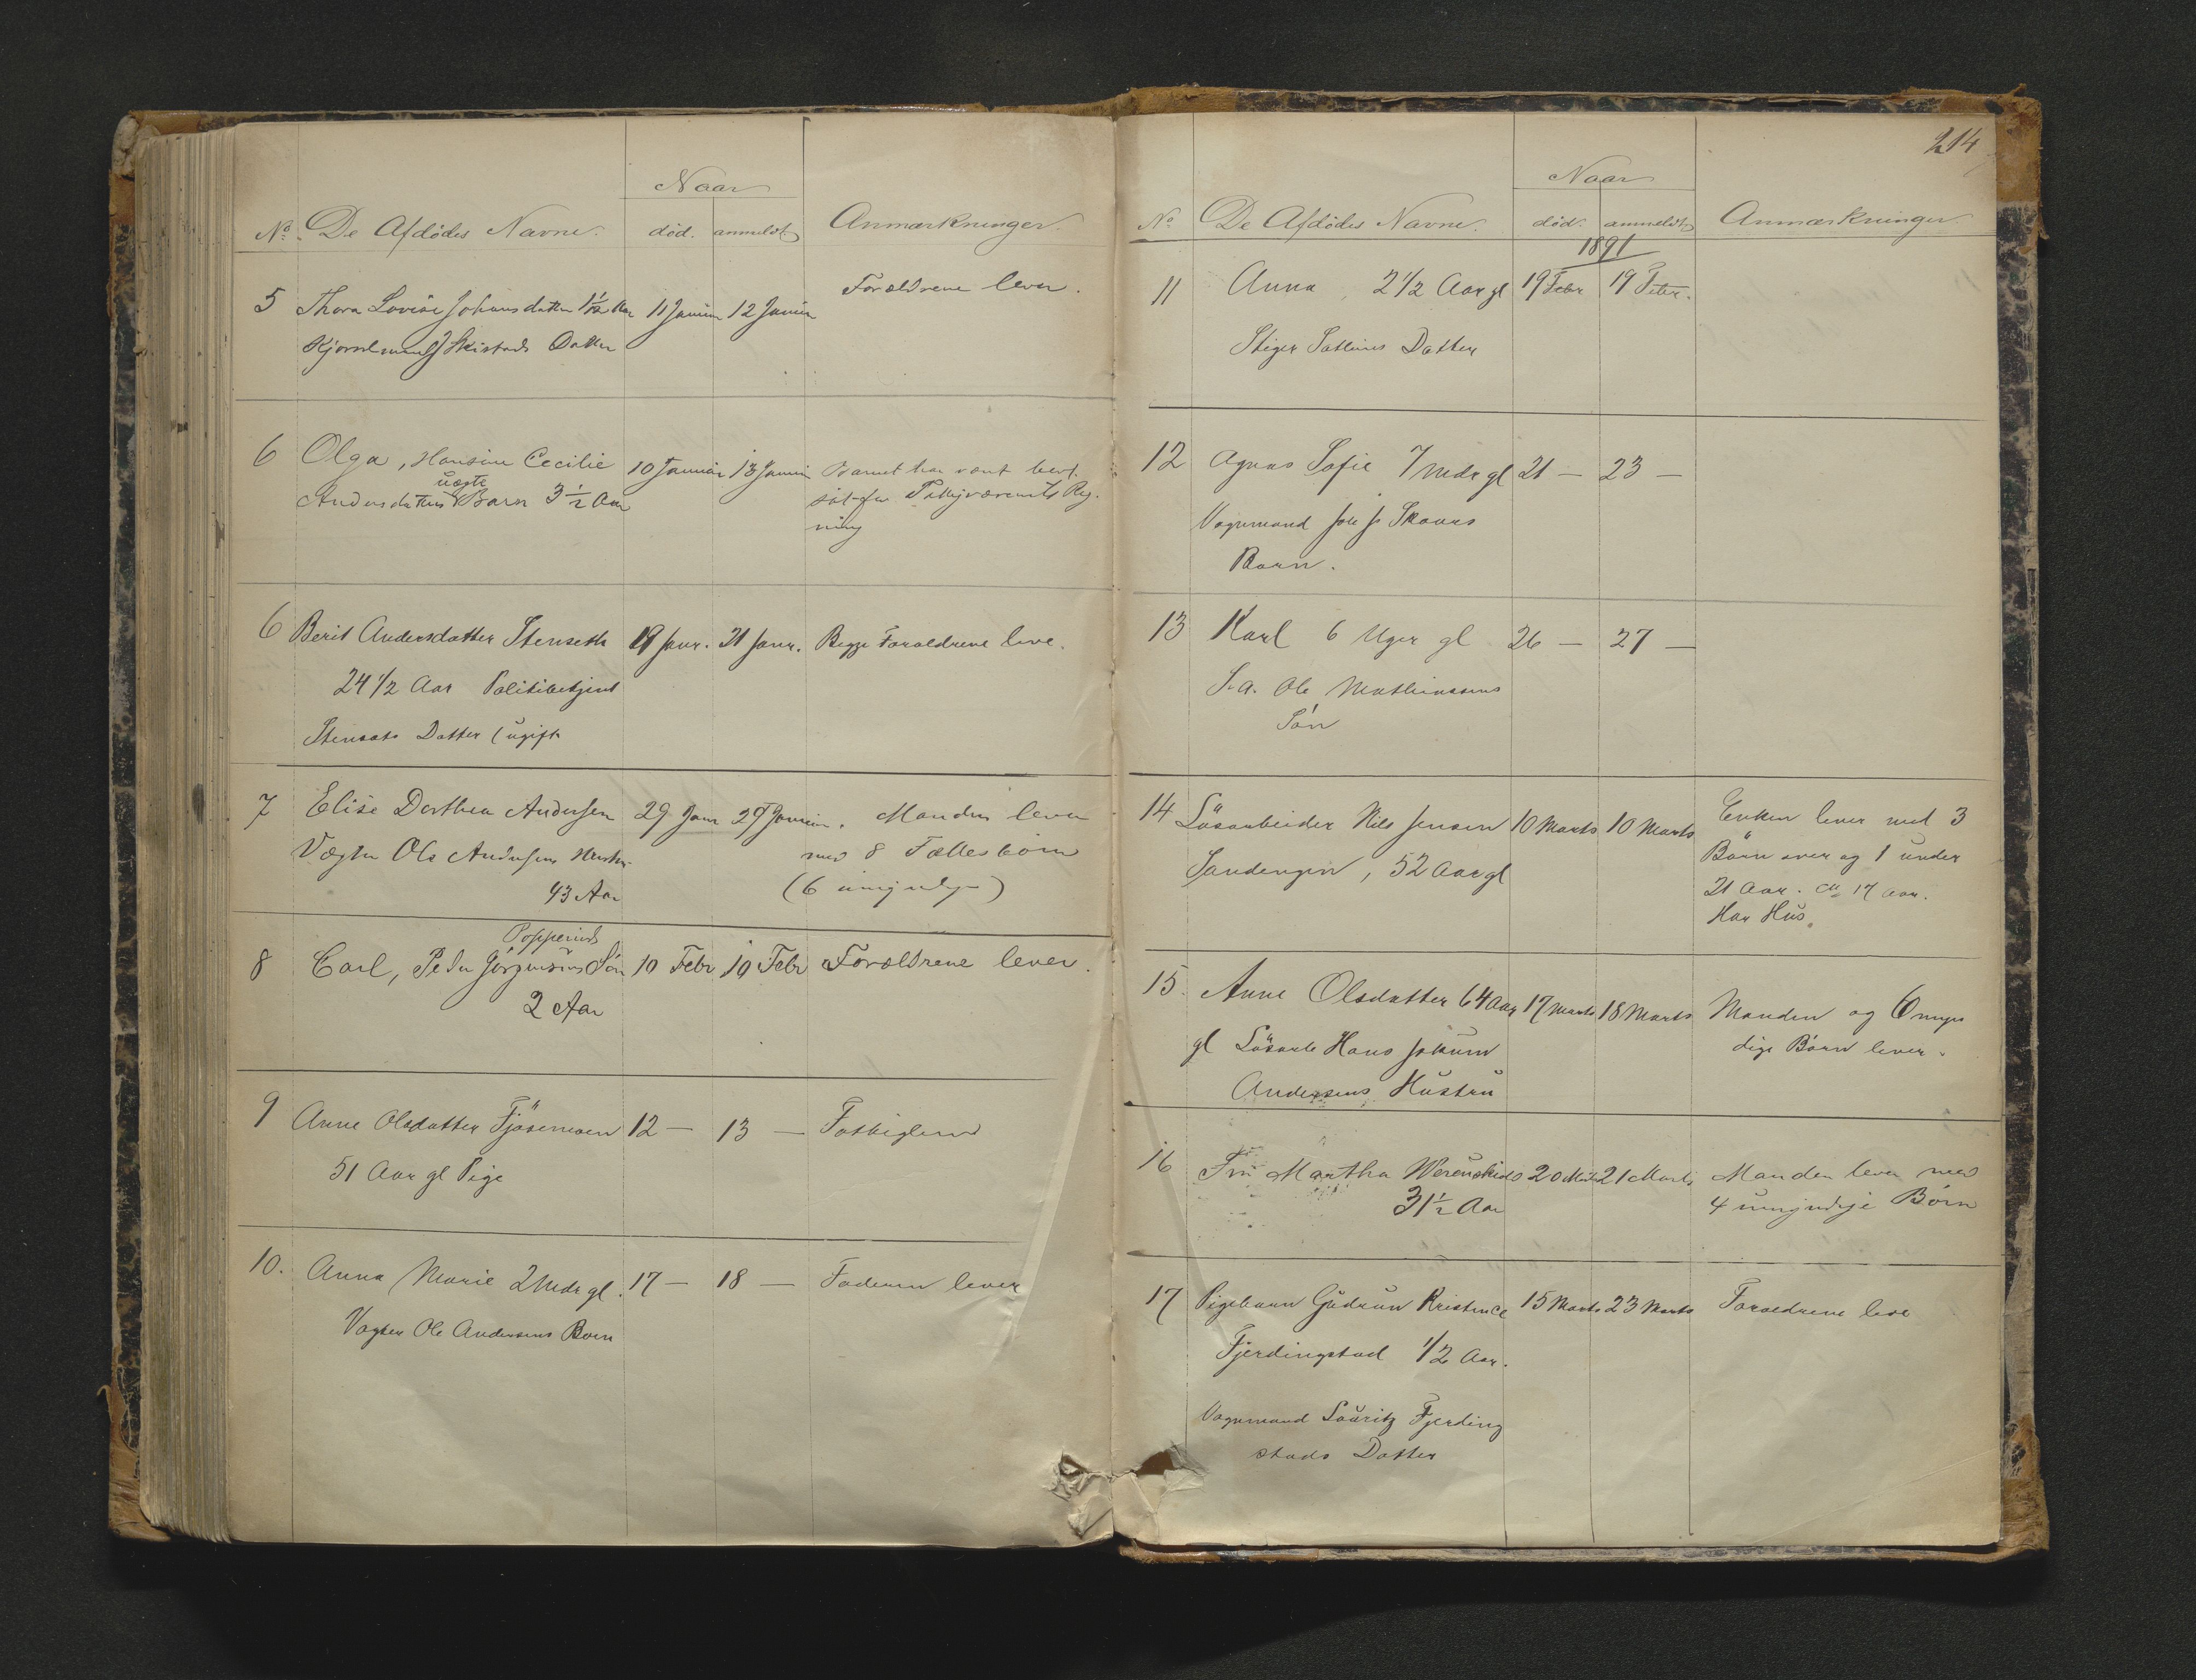 Naar
No. De Afdødes Navne. død. anmeldt. Anmærkninger.
5 Thora Lovise Johansdatter 1 1/12 Aar 11 Januar 12 Januar Forældrene lever.
Datter
6 Olga, Hansine Cecilie 10 Januar 13 Januar Barnet har været bort
uægte
Andersdatters Barn 3 1/2 Aar sat for Fattigvæsenets Reg-
ning
6 Berit Andersdatter Stenseth 19 Janr. 21 Janr. Begge Forældrene leve.
24 1/2 Aar Politibetjent
Stensets Datter (ugift
7 Elise Dorthea Andersen 29 Janr 29 Januar. Manden lever
Vægter Ole Andersens Hustru med 8 Fællesbørn
43 Aar (6 umyndige)
8 Carl, Peder Jørgensens Søn 10 Febr 10 Febr Forældrene lever.
2 Aar
9 Anne Olsdatter Fjösemoen 12 — 13 — Fattiglem
51 Aar gl Pige
10. Anna Marie 2 Mdr gl. 17 — 18 — Faderen lever
Vægter Ole Andersens Barn
214
Naar
No. De Afdødes Navne. død. anmeldt. Anmærkninger
1891
11 Anna, 2 1/2 Aar gl 19 Febr 19 Febr.
Stiger Datter
12 Agnes Sofie 7 Mdr gl 21 — 23 —
Vognmand Skaars
Barn.
13 Karl 6 Uger gl 26 — 27 —
S. a. Ole Mathiassens
Sön
14 Lösarbeider Nils Jensen 10 Marts 10 Marts Enken lever med 3
Sandengen, 52 Aar gl Börn over og 1 under
21 Aar. 17 Aar.
Har Hus.
15. Anne Olsdatter 64 Aar 17 Marts 18 Marts Manden og 6 myn
gl Lösarb Hans Jokum dige Börn lever.
Andersens Hustru
16 Fru Martha Werenskiold 20 Marts 21 Marts Manden lever med
31 1/2 Aar 4 umyndige Börn
17 Pigebarn Gudrun Kristence 15 Marts 23 Marts Forældrene leve
Fjerdingstad 1/2 Aar.
Vognmand Lauritz Fjerding
stads Datter